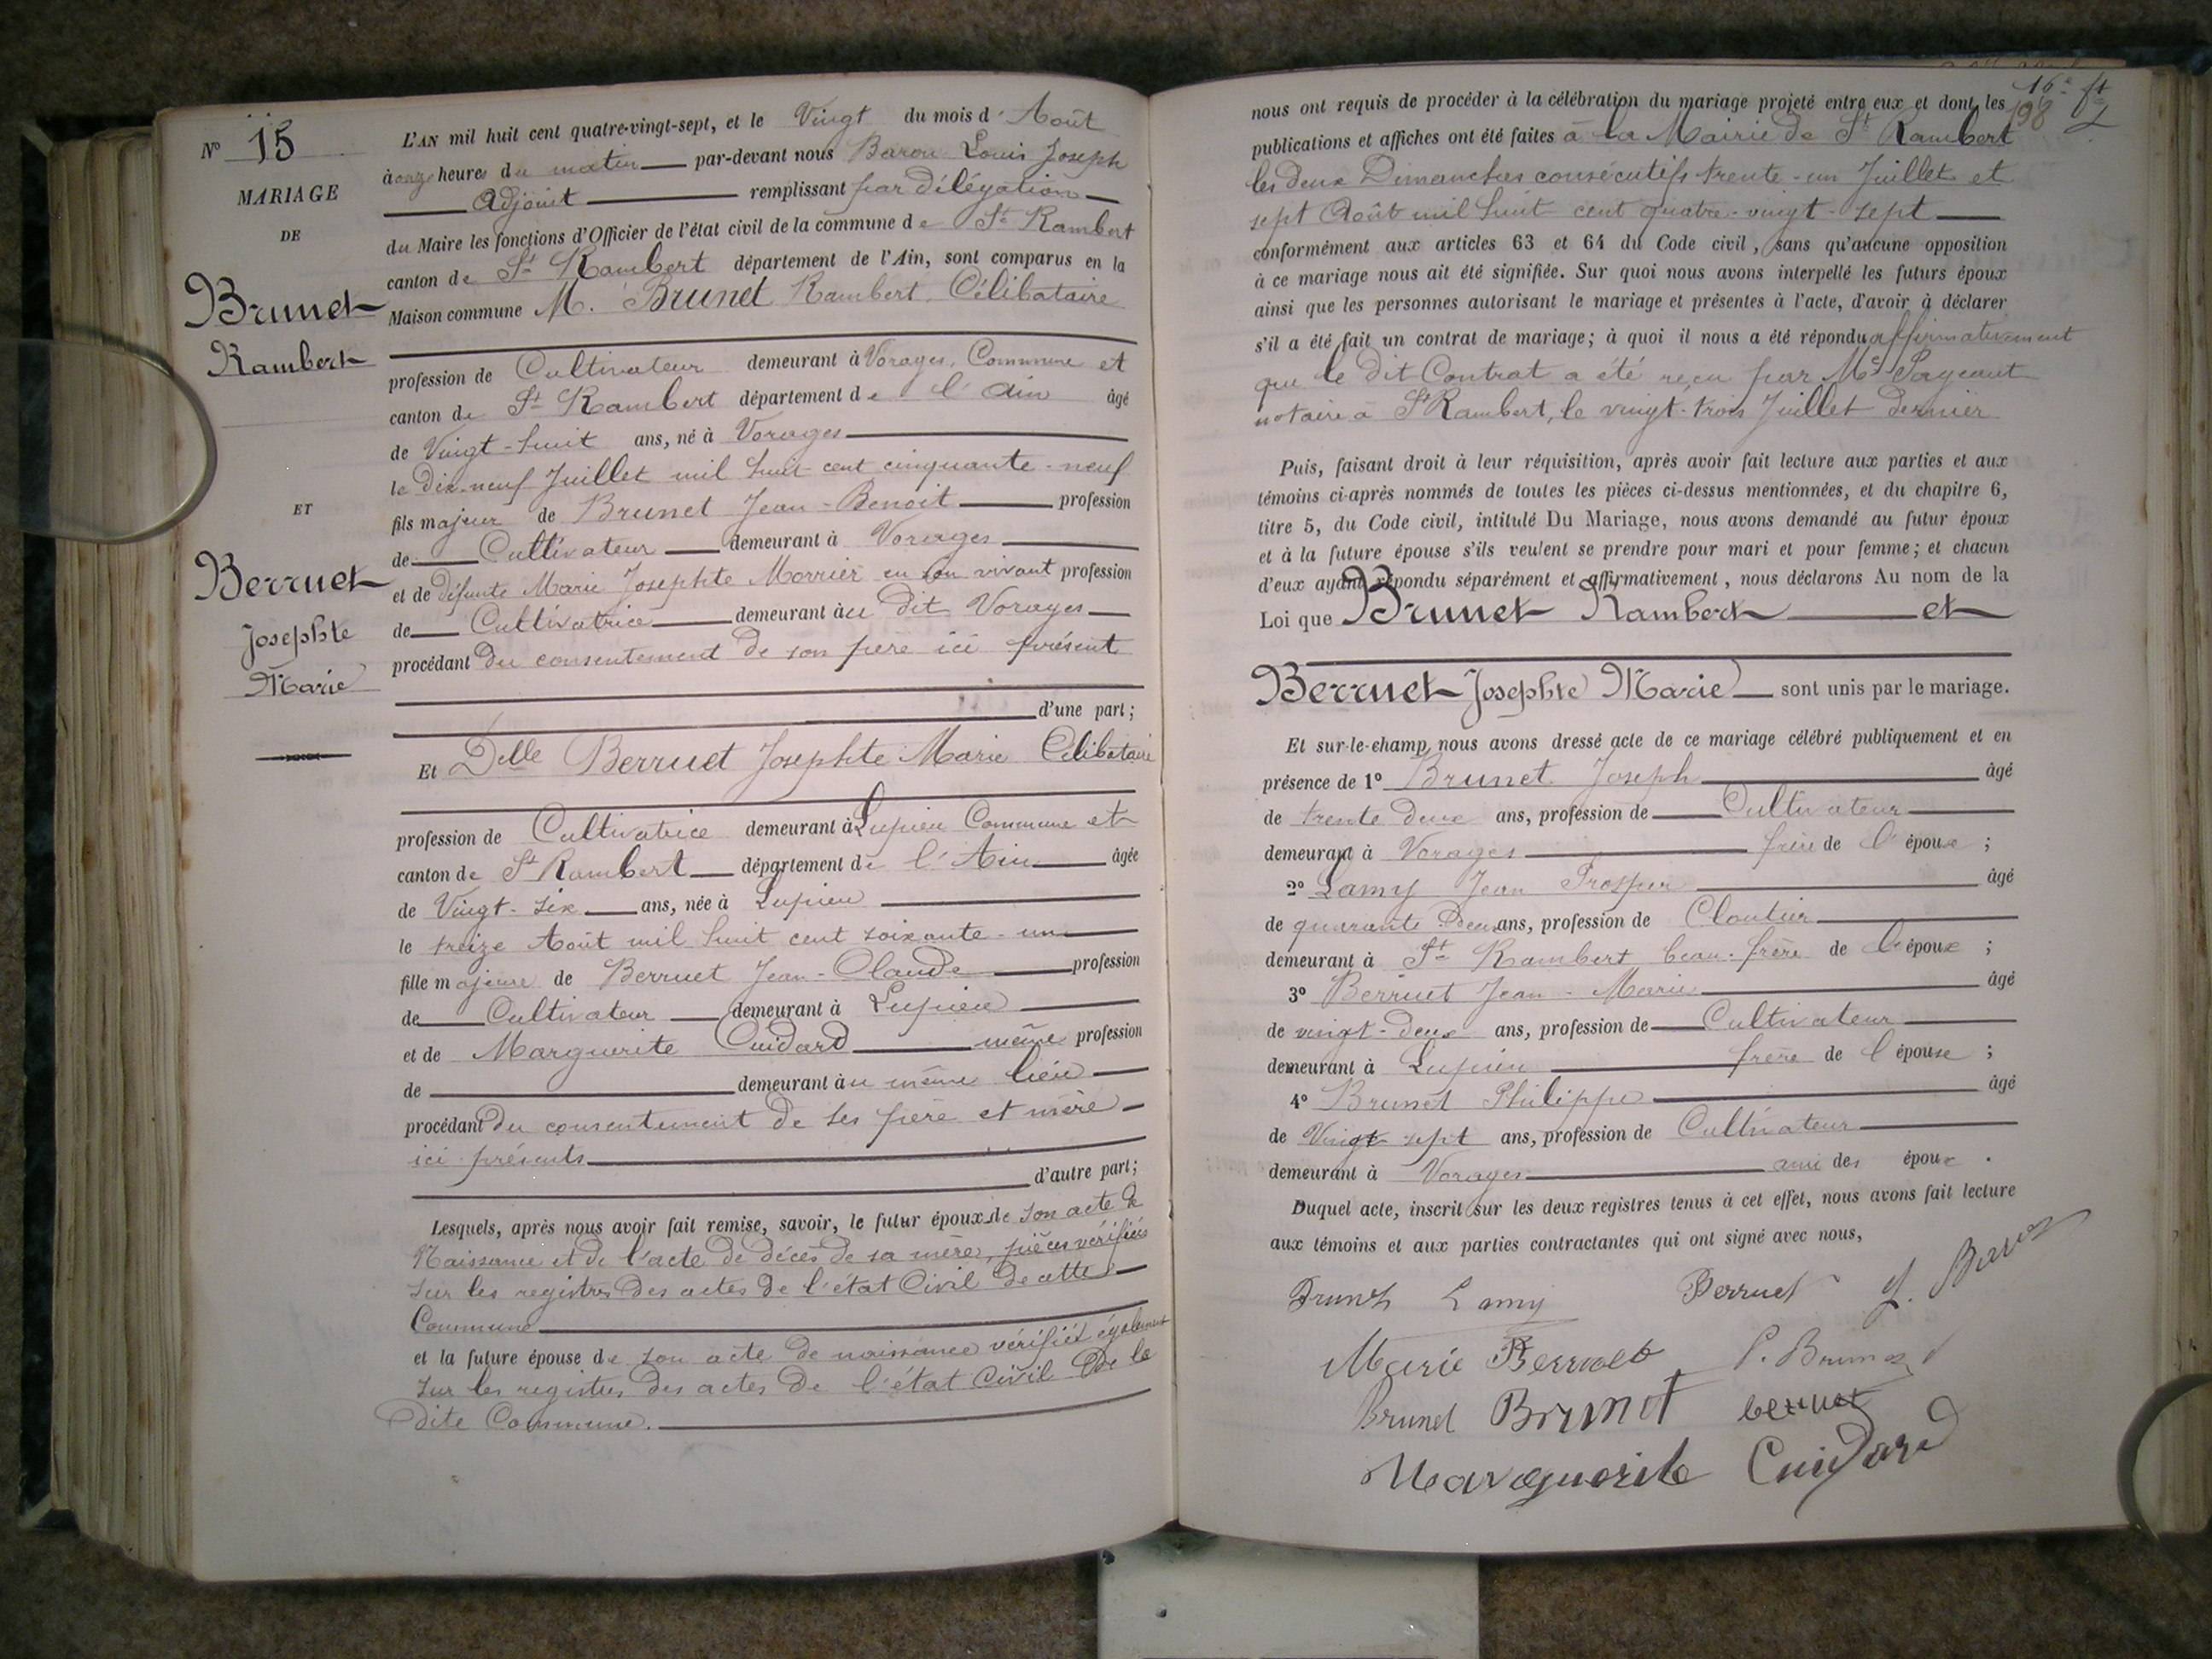 Nº 15
MARIAGE
DE
Brunet
Rambert
ET
Berruet
Josephte
Marie
L'AN mil huit cent quatre-vingt-sept, et le Vingt du mois d'Août
à onze heures du matin par-devant nous Baron Louis Joseph
Adjoint remplissant par délégation
du Maire les fonctions d'Officier de l'état civil de la commune de St Rambert
canton de St Rambert département de l'Ain, sont comparus en la
Maison commune M. Brunet Rambert, Célibataire
profession de Cultivateur demeurant à Vorages, Commune et
canton de St Rambert département de l'Ain âgé
de Vingt-huit ans, né à Vorages
le Dix-neuf Juillet mil huit cent cinquante-neuf
fils majeur de Brunet Jean-Benoit profession
de Cultivateur demeurant à Vorages
et de défunte Marie Josephte Morrier en son vivant profession
de Cultivatrice demeurant au dit Vorages
procédant du consentement de son père ici présent
d'une part;
Et Delle Berruet Josephte Marie Célibataire
profession de Cultivatrice demeurant à Lupieu Commune et
canton de St Rambert département de l'Ain âgée
de Vingt-six ans, née à Lupieu
le treize Août mil huit cent soixante-un
fille majeure de Berruet Jean-Claude profession
de Cultivateur demeurant à Lupieu
et de Marguerite Cuidard même profession
de demeurant au même lieu
procédant du consentement de ses père et mère
ici présents
d'autre part;
Lesquels, après nous avoir fait remise, savoir, le futur époux de son acte de
Naissance et de l'acte de décès de sa mère, pièces vérifiées
sur les registres des actes de l'état Civil de cette
Commune
et la future épouse de son acte de naissance vérifiés également
sur les registres des actes de l'état Civil de la
dite Commune.
nous ont requis de procéder à la célébration du mariage projeté entre eux et dont les
publications et affiches ont été faites à la Mairie de St Rambert
les deux Dimanches consécutifs trente-un Juillet et
sept Août mil huit cent quatre-vingt-sept
conformément aux articles 63 et 64 du Code civil, sans qu'aucune opposition
à ce mariage nous ait été signifiée. Sur quoi nous avons interpellé les futurs époux
ainsi que les personnes autorisant le mariage et présentes à l'acte, d'avoir à déclarer
s'il a été fait un contrat de mariage; à quoi il nous a été répondu affirmativement
que le dit Contrat a été reçu par Me Pageaut
notaire à St Rambert, le vingt-trois Juillet dernier
Puis, faisant droit à leur réquisition, après avoir fait lecture aux parties et aux
témoins ci-après nommés de toutes les pièces ci-dessus mentionnées, et du chapitre 6,
titre 5, du Code civil, intitulé Du Mariage, nous avons demandé au futur époux
et à la future épouse s'ils veulent se prendre pour mari et pour femme; et chacun
d'eux ayant répondu séparément et affirmativement, nous déclarons Au nom de la
Loi que Brunet Rambert et
Berruet Josephte Marie sont unis par le mariage.
Et sur-le-champ nous avons dressé acte de ce mariage célébré publiquement et en
présence de 1º Brunet Joseph âgé
de trente deux ans, profession de Cultivateur
demeurant à Vorages frère de l'époux ;
2º Lamy Jean Prosper âgé
de quarante deux ans, profession de Cloutier
demeurant à St Rambert beau-frère de l'époux ;
3º Berruet Jean-Marie âgé
de vingt-deux ans, profession de Cultivateur
demeurant à Lupieu frère de l'épouse ;
4º Brunet Philippe âgé
de Vingt sept ans, profession de Cultivateur
demeurant à Vorages ami des époux .
Duquel acte, inscrit sur les deux registres tenus à cet effet, nous avons fait lecture
aux témoins et aux parties contractantes qui ont signé avec nous,
Brunet Lamy Berruet
Marie Berruet P. Brunet
Brunet Brunet berruet
Marguerite Cuidard